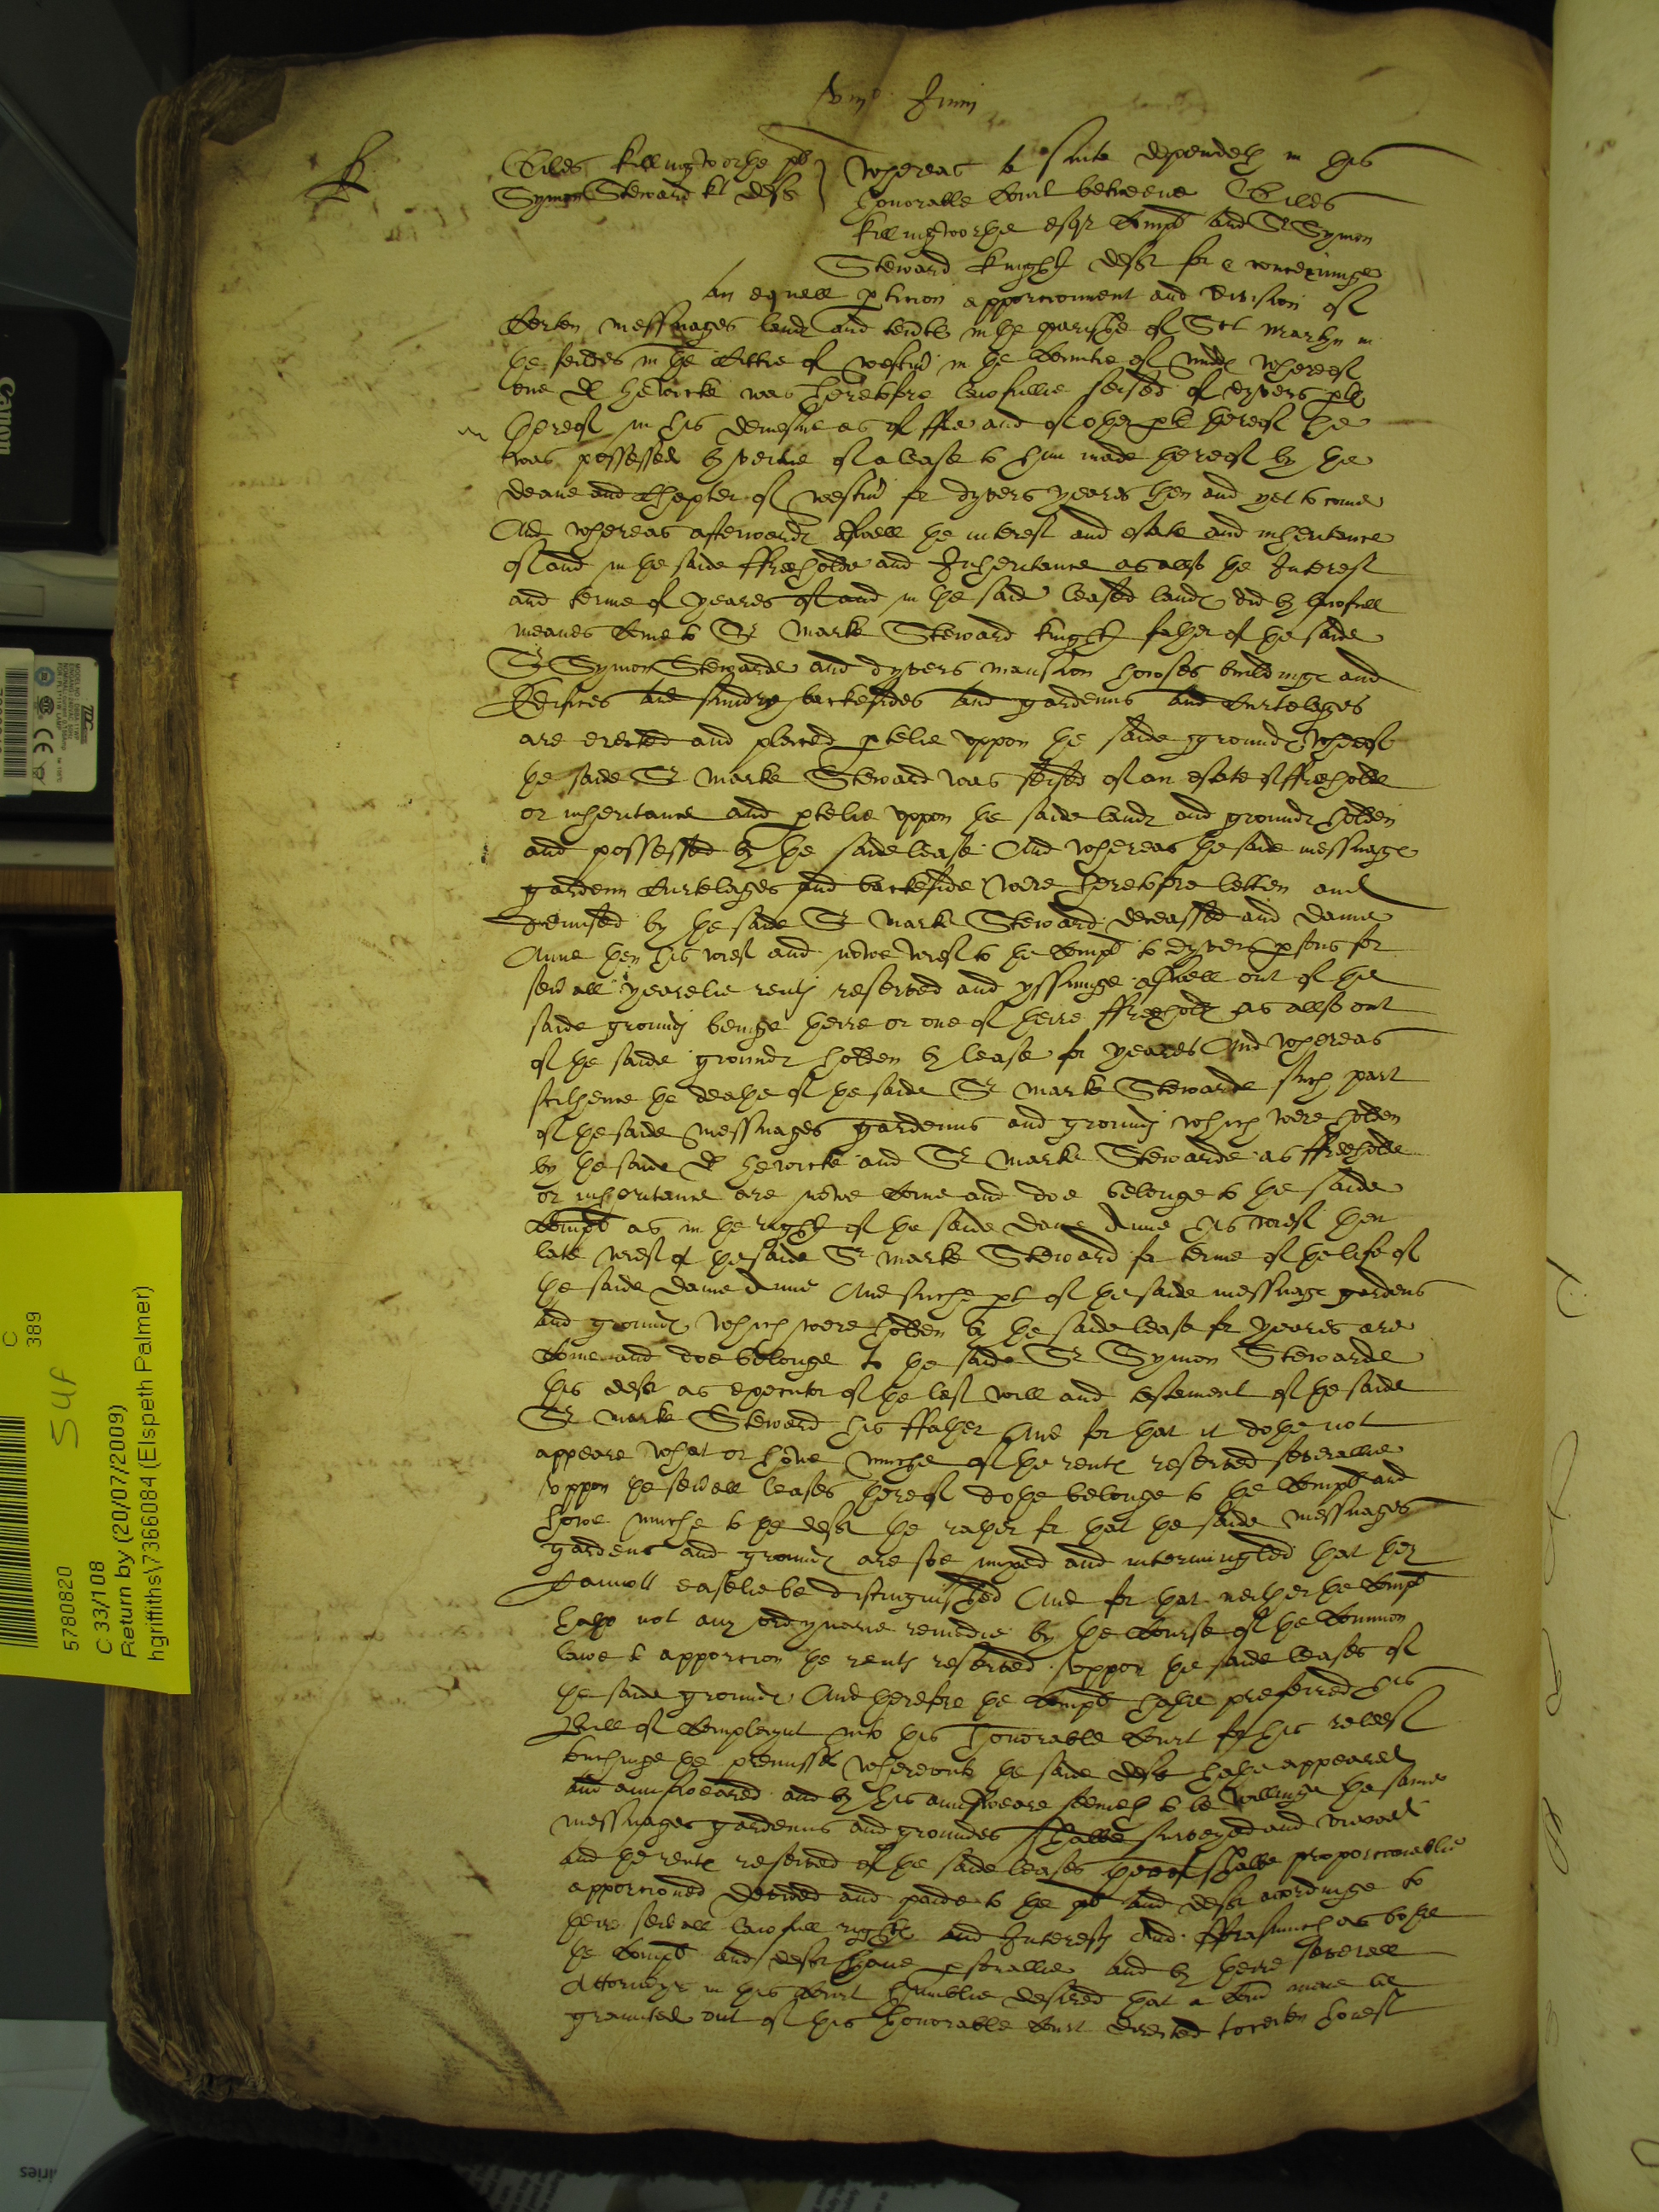 viijo Junij
R
Giles Killingworthe pl
Symon Steward kt deft
Whereas a suite dependeth in this
honorable Court betweene Giles
Killingworthe esqr Complt and Sr Symon
Steward knight deft for & concerninge
an equall particion apporcionment and division of
Certen messuages lands and tents in the parishe of Sct Martyn in
the feildes in the Cittie of westmr in the Countie of Midd whereof
one Dr Hewicke was heretofore lawfullie seised of dyvers pts
thereof in his demesne as of ffee and of other pte thereof he
was possessed by vertue of a lease to him made thereof by the
Deane and Chapter of westmr for dyvers yeares then and yet to come
And whereas afterwards aswell the interest and estate and inheritance
of and in the saide ffreeholde and Inheritance as allso the Interest
and terme of yeares of and in the said leased lands did by lawfull
meanes Come to Sr Marke Steward knight father of the saide
Sr Symon Stewarde and dyvers mansion howses buildings and
Edifices and sundry backesides and gardenns and Curtelages
are erected and placed ptelie uppon the saide grounds whereof
the saide Sr Marke Steward was seised of an estate of ffreeholde
or inheritance and ptelie uppon the saide lands and grounds holden
and possessed by the saide lease And whereas the saide messuages
gardenn Curtelages and backeside were heretofore letten and
demised by the saide Sr Marke Steward deceassed and Dame
Anne then his wief and nowe wief to the Complt to dyvers psons for
sevall yearelie rents reserved and yssuinge aswell out of the
saide grounds beinge theire or one of theire ffreehold as allso out
of the saide grounds holden by lease for yeares And whereas
sithence the deathe of the saide Sr Marke Stewarde such part
of the saide messuages gardenns and grounds which were holden
by the saide Dr Hewicke and Sr Marke Stewarde as ffreeholde
or inheritance are nowe Come and doe belonge to the saide
Complt as in the right of the saide Dame Anne his wief then
late wief of the saide Sr Marke Steward for terme of the life of
the saide Dame Anne And suche pte of the saide messuage gardens
and grounds which were holden by the saide lease for yeares are
Come and doe belonge to the saide Sr Symon Stewarde
this deft as executor of the last will and testament of the saide
Sr Marke Steward his ffather And for that it dothe not
appeare what or howe muche of the rents reserved severallie
uppon the sevall leases thereof dothe belonge to the Complt and
howe muche to the deft the rather for that the saide messuages
gardens and grounds are soe mixed and intermingled that they
Cannott easelie be distinguished And for that neither the Complt
hath not any ordynarie remedie by the Course of the Common
lawe to apporcion the rents reserved uppon the saide leases of
the saide grounds And therefore the Complt hathe preferred his
Bill of Complaynt into this honorable Court for his releef
touchinge the premisses whereunto the saide deft hathe appeared
and aunsweared and by his aunsweare seemeth to be willinge the same
messuages gardenns and groundes shalbe surveyed and viewed
and the rents reserved of the saide leases thereof shalbe proporcionablie
apporcioned devided and paide to the plt and deft accordinge to
theire sevall lawfull rights and Interests And fforasmuch as bothe
the Complt and deft have psonallie and by theire severall
Attorneys in this Court humblie desired that a Comn maie be
graunted out of this honorable Court directed to certen honest
Canon
C
389
Suf
5780820
C 33/108
Return by (20/07/2009)
hgriffiths\7366084 (Elspeth Palmer)